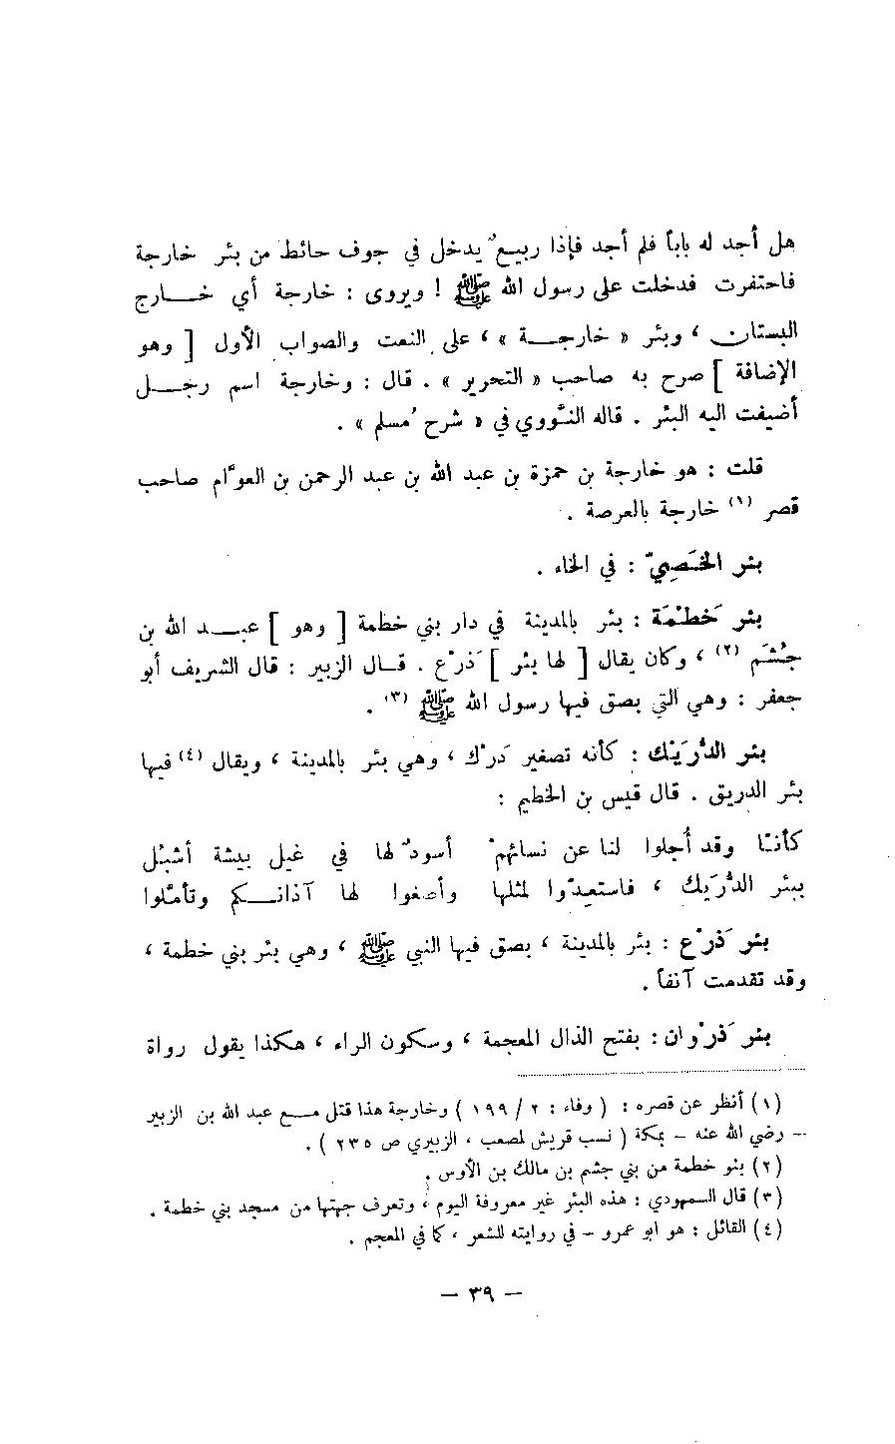 هل أجد له باباً فلم أجد فإذا ربيعٌ يدخل في جوف حائط من بئر خارجة
فاحتفرت فدخلت على رسول الله ﷺ ! ويروى : خارجة أي خـــارج
البستان ، وبئر « خارجــة » ، على النعت والصواب الأول [ وهو
الإضافة ] صرح به صاحب « التحرير » . قال : وخارجة اسم رجــل
أضيفت اليه البئر . قاله النَّووي في « شرح مُسلم » .
قلت : هو خارجة بن حمزة بن عبد الله بن عبد الرحمن بن العوَّام صاحب
قصر (١) خارجة بالعرصة .
بئر الخَصِيّ : في الخاء .
بئر خَطْمَة : بئر بالمدينة في دار بني خطمة [ وهو ] عبــد الله بن
جُشَم (٢) ، وكان يقال [ لها بئر ] ذَرْع . قــال الزبير : قال الشريف أبو
جعفر : وهي التي بصق فيها رسول الله ﷺ (٣) .
بئر الدُّرَيْك : كأنه تصغير دَرْك ، وهي بئر بالمدينة ، ويقال (٤) فيها
بئر الدريق . قال قيس بن الخطيم :
كأنـّا وقد أُجلوا لنا عن نسائهمْ أسودٌ لها في غيل بيشة أشبُل
ببئر الدُّرَيك ، فاستعِدّوا لمثلها وأصغوا لها آذانــكم وتأمَّلوا
بئر ذَرْع : بئر بالمدينة ، بصق فيها النبي ﷺ ، وهي بئر بني خطمة ،
وقد تقدمت آنفاً .
بئر ذَرْوان : بفتح الذال المعجمة ، وسكون الراء ، هكذا يقول رواة
(١) أنظر عن قصره : ( وفاء : ٢ / ١٩٩ ) وخارجة هذا قتل مــع عبد الله بن الزبير
– رضي الله عنه – بمكة ( نسب قريش لمصعب ، الزبيري ص ٢٣٥ ) .
(٢) بنو خطمة من بني جشم بن مالك بن الأوس .
(٣) قال السمهودي : هذه البئر غير معروفة اليوم ، وتعرف جهتها من مسجد بني خطمة .
(٤) القائل : هو ابو عمرو – في روايته للشعر ، كما في المعجم .
– ٣٩ –